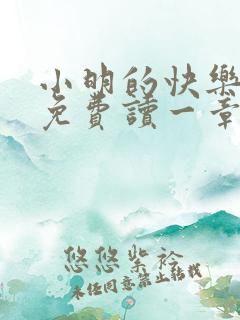 小明的快樂
免費讀一章
悠悠紫衿
未经同意禁止转载